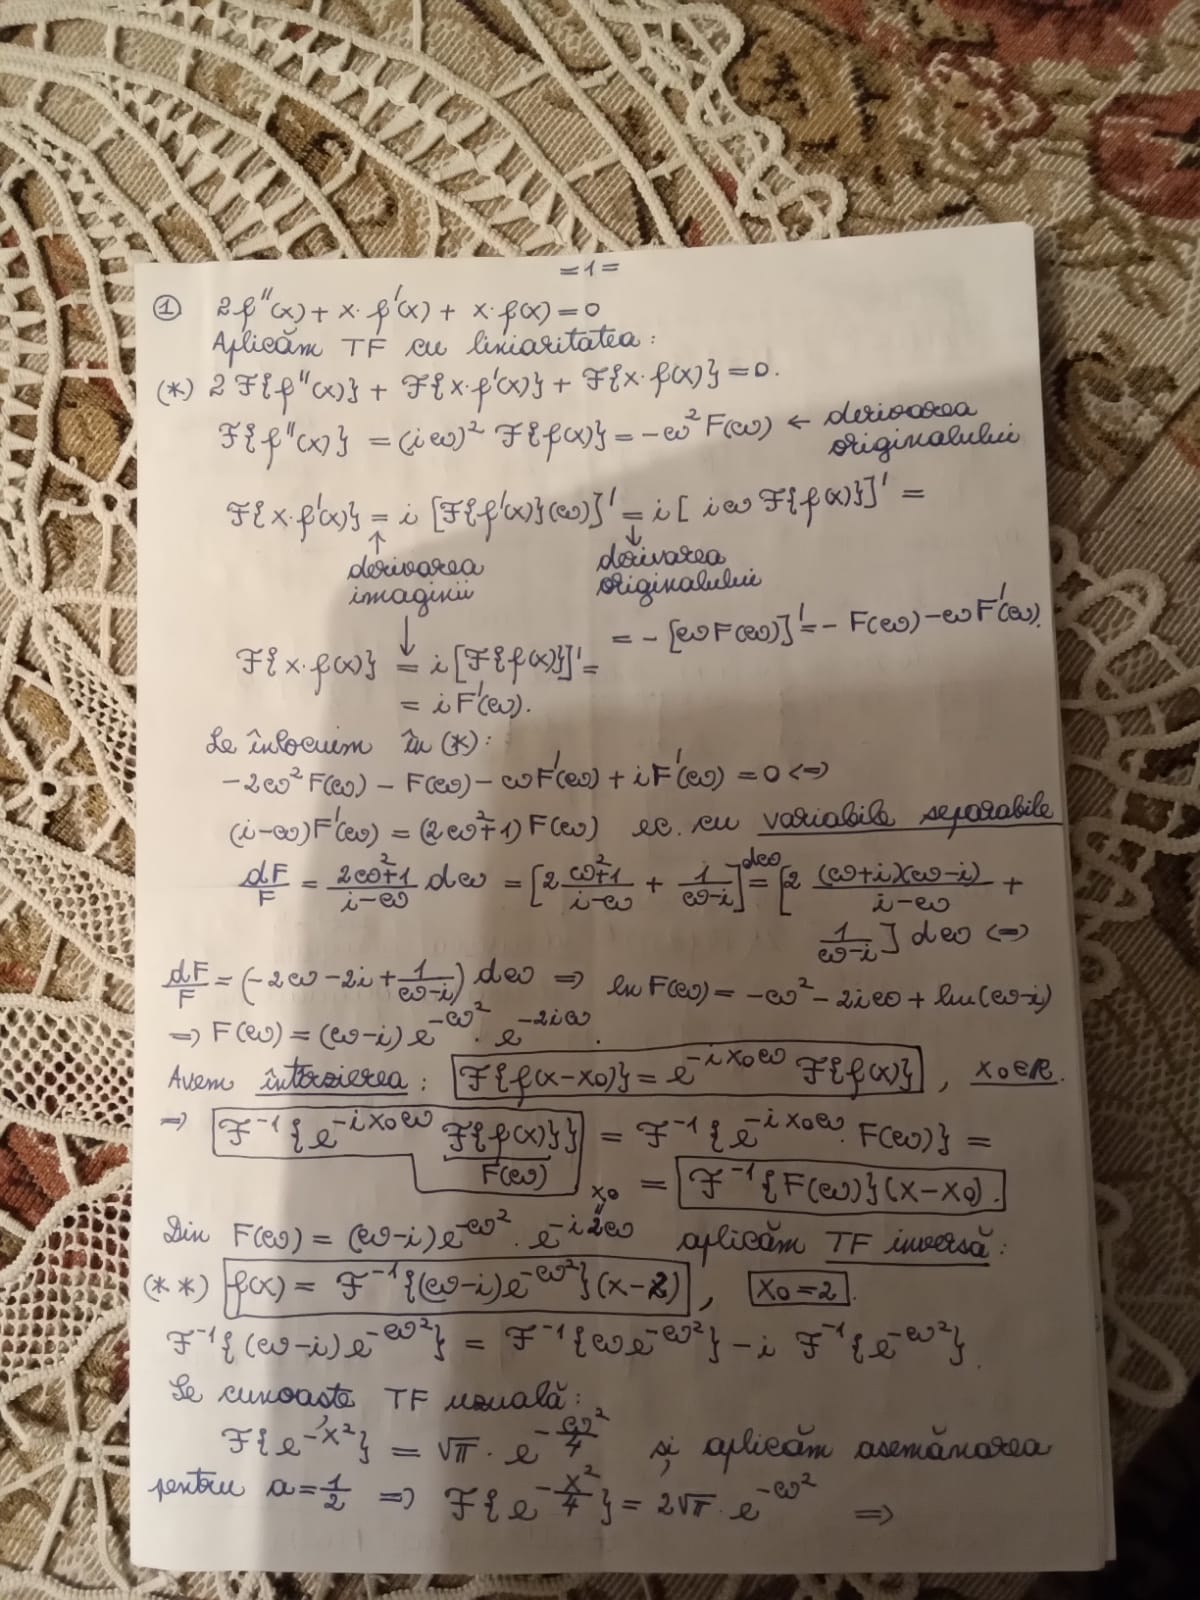 =1=
① 2f''(x) + x·f'(x) + x·f(x) = 0
Aplicăm TF cu liniaritatea:
(*) 2 ℱ{f''(x)} + ℱ{x·f'(x)} + ℱ{x·f(x)} = 0.
ℱ{f''(x)} = (iω)² ℱ{f(x)} = -ω² F(ω) ← derivarea originalului
ℱ{x·f'(x)} = i [ℱ{f'(x)}(ω)]' = i [iω ℱ{f(x)}]' =
↑ derivarea imaginii ↓ derivarea originalului
= -[ωF(ω)]' = -F(ω) - ωF'(ω).
ℱ{x·f(x)} = i [ℱ{f(x)}]' =
= iF'(ω).
Se înlocuim în (*):
-2ω²F(ω) - F(ω) - ωF'(ω) + iF'(ω) = 0 <=>
(i-ω)F'(ω) = (2ω²+1)F(ω) ec. cu variabile separabile
dF/F = (2ω²+1)/(i-ω) dω = [2 (ω²+1)/(i-ω) + 1/(ω-i)] dω = [2 (ω+i)(ω-i)/(i-ω) +
1/(ω-i)] dω <=>
dF/F = (-2ω - 2i + 1/(ω-i)) dω => ln F(ω) = -ω² - 2iω + ln(ω-i)
=> F(ω) = (ω-i) e^{-ω²} · e^{-2iω}.
Avem întârzierea: ℱ{f(x-x₀)} = e^{-ix₀ω} ℱ{f(x)}, x₀∈ℝ.
=> ℱ⁻¹{e^{-ix₀ω} ℱ{f(x)}} = ℱ⁻¹{e^{-ix₀ω}·F(ω)} =
F(ω) = ℱ⁻¹{F(ω)}(x-x₀).
x₀
Din F(ω) = (ω-i)e^{-ω²}·e^{-i2ω} aplicăm TF inversă:
(**) f(x) = ℱ⁻¹{(ω-i)e^{-ω²}}(x-2), x₀=2.
ℱ⁻¹{(ω-i)e^{-ω²}} = ℱ⁻¹{ωe^{-ω²}} - i ℱ⁻¹{e^{-ω²}}.
Se cunoaște TF uzuală:
ℱ{e^{-x²}} = √π · e^{-ω²/4} și aplicăm asemănarea
pentru a=1/2 => ℱ{e^{-x²/4}} = 2√π · e^{-ω²} =>